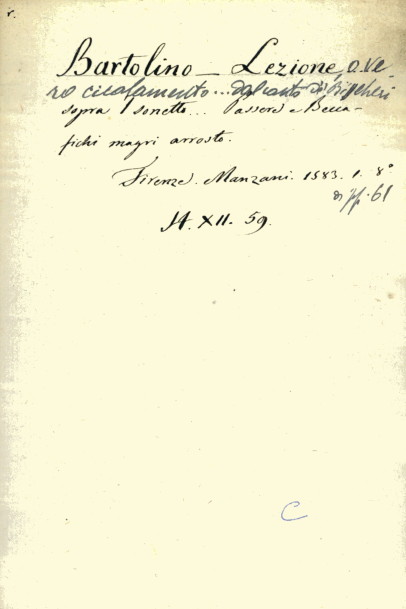 r.
Bartolino – Lezione, o ve-
ro cicalamento... dal canto de' Bischeri
sopra 'l sonetto... Passere e Becca-
fichi magri arrosto.
Firenze. Manzani. 1583. 1. 8°
di pp. 61
14. XII. 59.
C